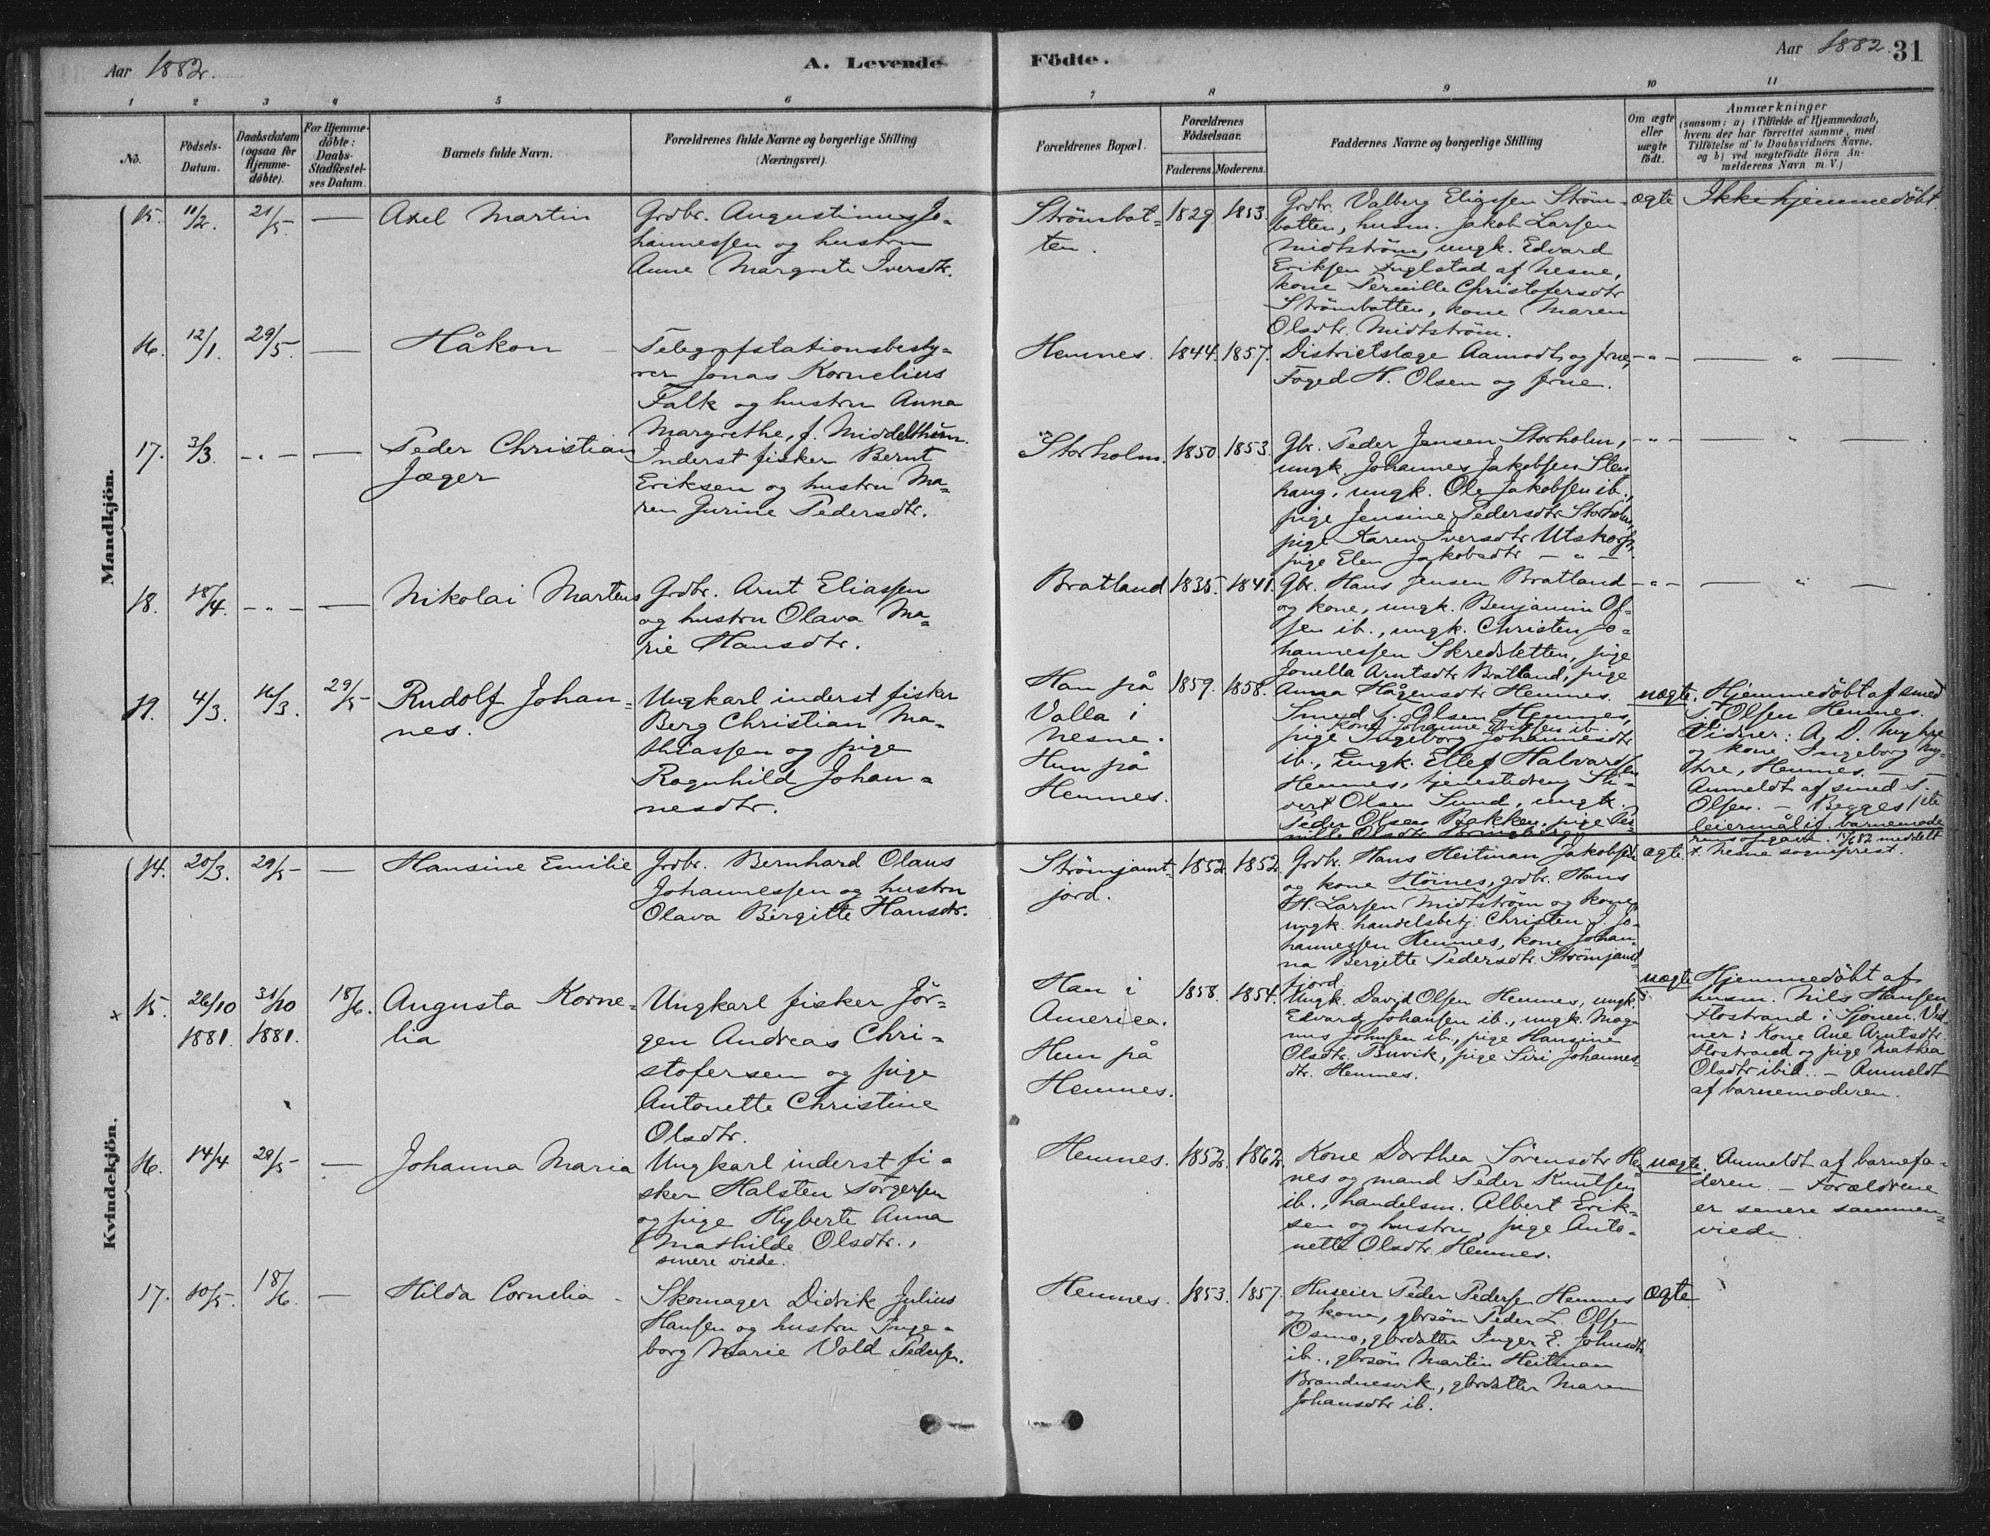 Aar 1882.
A. Levende
Födte.
Aar 1882. 31
1 2 3 4 5 6 7 8 9 10 11
No.
Födsels-
Datum.
Daabsdatum
(ogsaa for
Hjemme-
döbte).
For Hjemme-
döbte:
Daabs-
Stadfæstel-
ses Datum.
Barnets fulde Navn.
Forældrenes fulde Navne og borgerlige Stilling
(Næringsvei).
Forældrenes Bopæl.
Forældrenes
Födselsaar.
Faderens. Moderens.
Faddernes Navne og borgerlige Stilling
Om ægte
eller
uægte
födt.
Anmærkninger
(saasom: a) i Tilfælde af Hjemmedaab,
hvem der har forrettet samme, med
Tilföielse af to Daabsvidners Navne,
og b) ved uægtefödte Börn An-
melderens Navn m. V.)
Mandkjön.
15. 11/2 21/5 —
Axel Martin
Grdbr. Augustinus Jo-
hannessen og hustru
Anne Margrete Iversdtr.
Strömbot-
ten.
1829 1853.
Grdbr. Valberg Eliassen Ström-
botten, husm. Jakob Larsen
Midtström, ungk. Edvard
Eriksen Inglstad af Nesne,
kone Pernille Christofersdtr
Strömbotten, kone Maren
Olsdtr. Midtström.
ægte
Ikke hjemmedöbt.
16. 12/1. 29/5. —
Håkon
Telegrafstationsbesty-
rer Jonas Kornelius
Falk og hustru Anna
Margrethe, f. Middelthun.
Hemnes.
1844. 1857.
Districtslæge Aamodt og frue,
Foged H. Olsen og frue.
— " — — " —
17. 3/3. - " - —
Peder Christian
Jæger
Inderst fisker Bernt
Eriksen og hustru Ma-
ren Jurine Pedersdtr.
Storholm.
1850 1853.
Gbr. Peder Jensen Storholm,
ungk. Johannes Jakobsen Sten
haug, ungk. Ole Jakobsen ib.,
pige Jensine Pedersdtr Storholm,
pige Karen Iversdtr Utskarp,
pige Elen Jakobsdtr — " —
— " — — " —
18. 18/4. - " - —
Nikolai Martens
Grdbr. Arnt Eliassen
og hustru Olava Ma-
rie Hansdtr.
Bratland
1835. 1841.
Gbr. Hans Jensen Bratland
og kone, ungk. Benjamin Ol-
sen ib., ungk. Christen Jo-
hannessen Skredsletten, pige
Jonella Arntsdtr Bratland, pige
Anna Hågensdtr Hemnes.
— " — — " —
19. 4/3. 16/3. 29/5
Rudolf Johan-
nes.
Ungkarl inderst fisker
Berg Christian Ma-
thiassen og pige
Ragnhild Johan-
nesdtr.
Han på
Valla i
Nesne.
Hun på
Hemnes.
1859. 1858.
Smed S. Olsen Hemnes,
kone Johanne Eriksen ib.
pige Ingeborg Johannesdtr
ib., ungk. Ellef Halvardsen
Hemnes, tjenestedreng Si-
vert Olsen Sund, ungk.
Peder Olsen Bakken, pige Per-
nille Olsdtr
uægte.
Hjemmedöbt af smed
S. Olsen Hemnes.
Vidner: A. D. Myhre
og kone Ingeborg My-
hre, Hemnes. —
Anmeldt af smed S.
Olsen. — Begges 1ste
leiermål if. barnemode
rens opgave. meddelt
t. Nesne sogneprest.
Kvindekjön.
14. 20/3. 29/5 —
Hansine Emilie
Grdbr. Bernhard Olaus
Johannessen og hustru
Olava Birgitte Hansdtr.
Strömjamt-
jord.
1852. 1852.
Grdbr. Hans Heitman Jakobsen
og kone Höines, grdbr. Hans
H. Larsen Midtström og kone,
ungk. handelsbetj. Christen J. Jo-
hannessen Hemnes, kone Johan-
na Bergette Pedersdtr. Strömjamt-
fjord.
ægte.
× 15. 26/10 1881. 31/10 1881. 18/6.
Augusta Korne-
lia
Ungkarl fisker Jör-
gen Andreas Chri-
stofersen og pige
Antonette Christine
Olsdtr.
Han i
America.
Hun på
Hemnes.
1858. 1854.
Ungk. David Olsen Hemnes, ungk.
Edvard Johansen ib., ungk. Mag-
nus Johnsen ib., pige Hansine
Olsdtr. Buvik, pige Siri Johannes-
dtr. Hemnes.
uægte
Hjemmedöbt af
husm. Nils Hansen
Flostrand i Sjonen. Vid-
ner: Kone Ane Arntsdtr.
Flostrand og pige Mathea
Olsdtr ibid. — Anmeldt
af barnemoderen.
16. 14/4 29/5 —
Johanna Maria
Ungkarl inderst fi-
sker Halsten Torgersen
og pige Hyberte Anna
Mathilde Olsdtr.,
senere viede.
Hemnes.
1852. 1862.
Kone Dorthea Sörensdtr Hem-
nes og mand Peder Knutsen
ib., handelsm. Albert Erik-
sen og hustru, pige Anto-
nette Olsdtr. Hemnes.
uægte.
Anmeldt af barnefa-
deren. — Forældrene
er senere sammen-
viede.
17. 10/5. 18/6 —
Hilda Cornelia
Skomager Didrik Julius
Hansen og hustru Inge-
borg Marie Vold Pedersen.
Hemnes.
1853. 1857.
Huseier Peder Pedersen Hemnes
og kone, gbrsön Peder L. Olsen
Osmo, gbrdatter Inger E. Johnsdtr
ib., gbrsön Martin Heitman
Brandnesvik, gbrdatter Maren
Johansdtr ib.
ægte